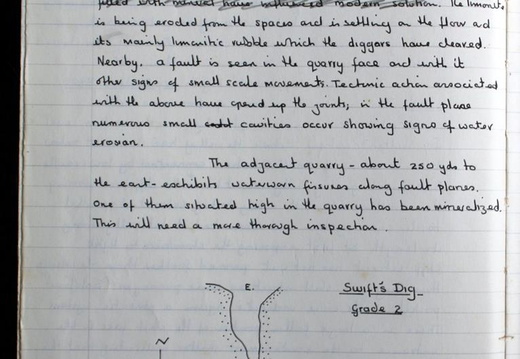 filled with mineral have influenced modern solution. The limonite
is being eroded from the spaces and is settling on the flow ad
its mainly limonitic rubble which the diggers have cleared.
Nearby, a fault is seen in the quarry face and with it
other signs of small scale movements. Tectnic action associated
with the above have opend up the joints; in the fault plane
numerous small cavities occur showing signs of water
erosion.
The adjacent quarry - about 250 yds to
the east - exhibits waterworn fissures along fault planes.
One of them situated high in the quarry has been mineralized.
This will need a more thorough inspection.
E.
Swift's Dig
Grade 2
N